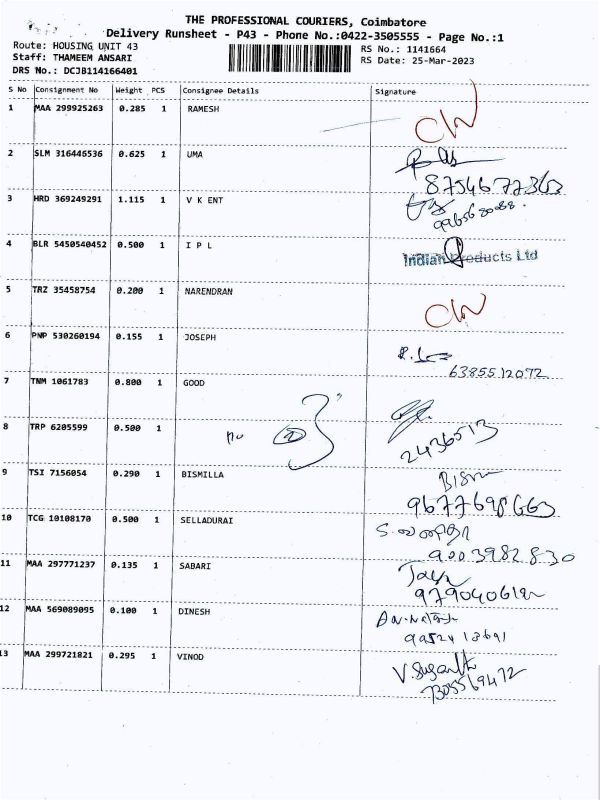 THE PROFESSIONAL COURIERS, Coimbatore
Delivery Runsheet - P43 - Phone No.:0422-3505555 - Page No.:1
Route: HOUSING UNIT 43
RS No.: 1141664
Staff: THAMEEM ANSARI
RS Date: 25-Mar-2023
DRS No.: DCJB114166401
S No Consignment No Weight PCS Consignee Details Signature
1 MAA 299925263 0.285 1 RAMESH
2 SLM 316446536 0.625 1 UMA
8754677363
3 HRD 369249291 1.115 1 V K ENT
4 BLR 5450540452 0.500 1 I P L
Indian Products Ltd
5 TRZ 35458754 0.200 1 NARENDRAN
6 PNP 530260194 0.155 1 JOSEPH
6385512072
7 TNM 1061783 0.800 1 GOOD
8 TRP 6205599 0.500 1
2436513
9 TSI 7156054 0.290 1 BISMILLA
10 TCG 10108170 0.500 1 SELLADURAI
9003982830
11 MAA 297771237 0.135 1 SABARI
12 MAA 569089095 0.100 1 DINESH
13 MAA 299721821 0.295 1 VINOD
7305569472